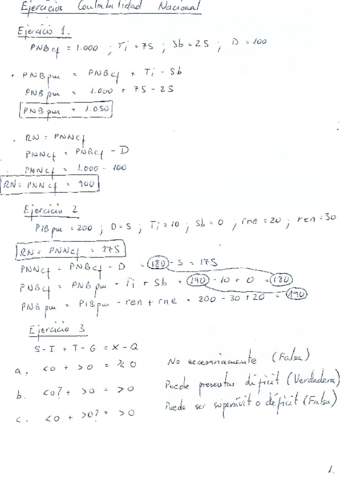 Ejercicios Contabilidad Nacional
Ejercicio 1.
PNBcf = 1.000 ; Ti = 75 ; Sb = 25 ; D = 100
· PNBpm = PNBcf + Ti - Sb
PNBpm = 1.000 + 75 - 25
PNBpm = 1.050
· RN = PNNcf
PNNcf = PNBcf - D
PNNcf = 1.000 - 100
RN = PNNcf = 900
Ejercicio 2
PIBpm = 200 ; D = 5 ; Ti = 10 ; Sb = 0 ; rne = 20 ; ren = 30
RN = PNNcf = 175
PNNcf = PNBcf - D = 180 - 5 = 175
PNBcf = PNBpm - Ti + Sb = 190 - 10 + 0 = 180
PNBpm = PIBpm - ren + rne = 200 - 30 + 20 = 190
Ejercicio 3
S - I + T - G = X - Q
a. <0 + >0 = ≷ 0 No necesariamente (Falsa)
b. <0? + >0 = >0 Puede presentar déficit (Verdadera)
c. <0 + >0? = >0 Puede ser superávit o déficit (Falsa)
1.